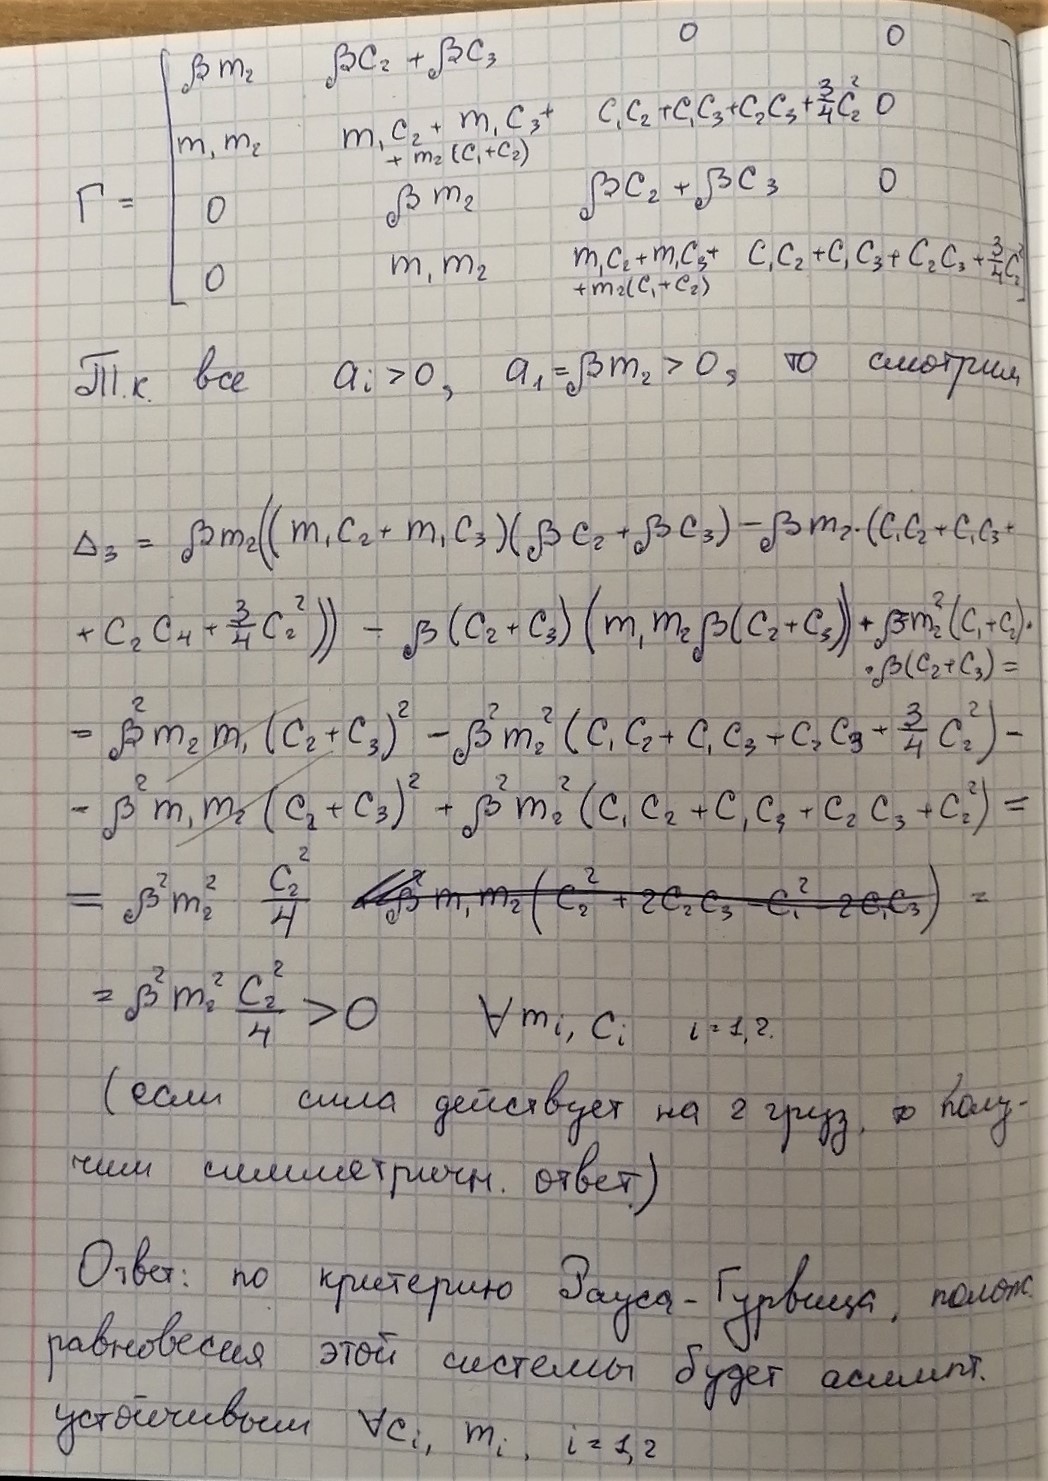 βm₂ βC₂ + βC₃ 0 0
m₁m₂ m₁C₂ + m₁C₃ + + m₂(C₁+C₂) C₁C₂+C₁C₃+C₂C₃+3/4C₂² 0
Γ = 0 βm₂ βC₂ + βC₃ 0
0 m₁m₂ m₁C₂+m₁C₃+ +m₂(C₁+C₂) C₁C₂+C₁C₃+C₂C₃+3/4C₂²
Т.к. все aᵢ>0, a₁=βm₂>0, то смотрим
Δ₃ = βm₂((m₁C₂+m₁C₃)(βC₂+βC₃)-βm₂·(C₁C₂+C₁C₃+
+C₂C₄+3/4C₂²)) - β(C₂+C₃)(m₁m₂β(C₂+C₃))+βm₂²(C₁+C₂)·
·β(C₂+C₃)=
= β²m₂m₁(C₂+C₃)² - β²m₂²(C₁C₂+C₁C₃+C₂C₃+3/4C₂²)-
- β²m₁m₂(C₂+C₃)² + β²m₂²(C₁C₂+C₁C₃+C₂C₃+C₂²)=
= β²m₂² C₂²/4 β²m₁m₂(C₂²+2C₂C₃-C₁²-2C₁C₃) =
= β²m₂² C₂²/4 >0 ∀mᵢ, cᵢ i=1,2.
(если сила действует на 2 груз, то полу-
чим симметричн. ответ)
Ответ: по критерию Рауса-Гурвица, полож.
равновесия этой системы будет асимпт.
устойчивым ∀cᵢ, mᵢ, i=1,2